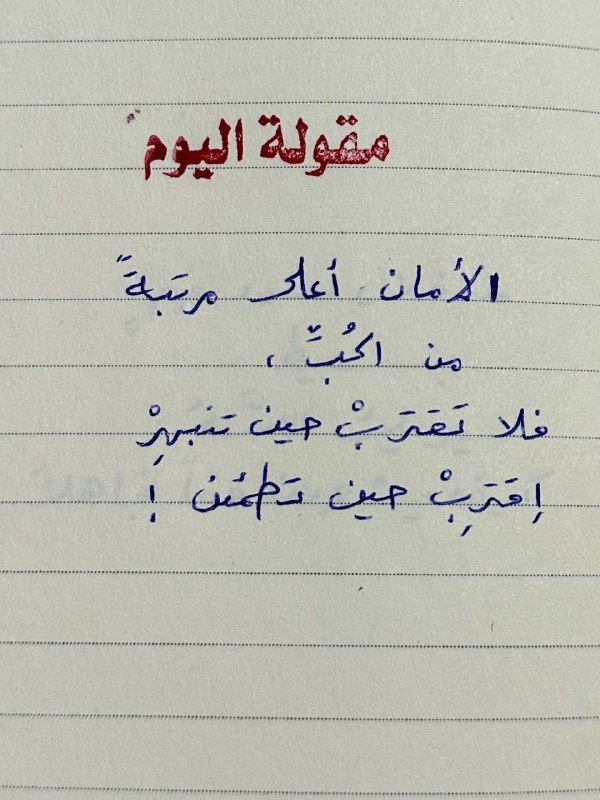 مقولة اليوم
الأمان أعلى مرتبةً
من الحُبِّ ،
فلا تَقترَبْ حين تنبَهِرْ
اِقترِبْ حين تطمئن !